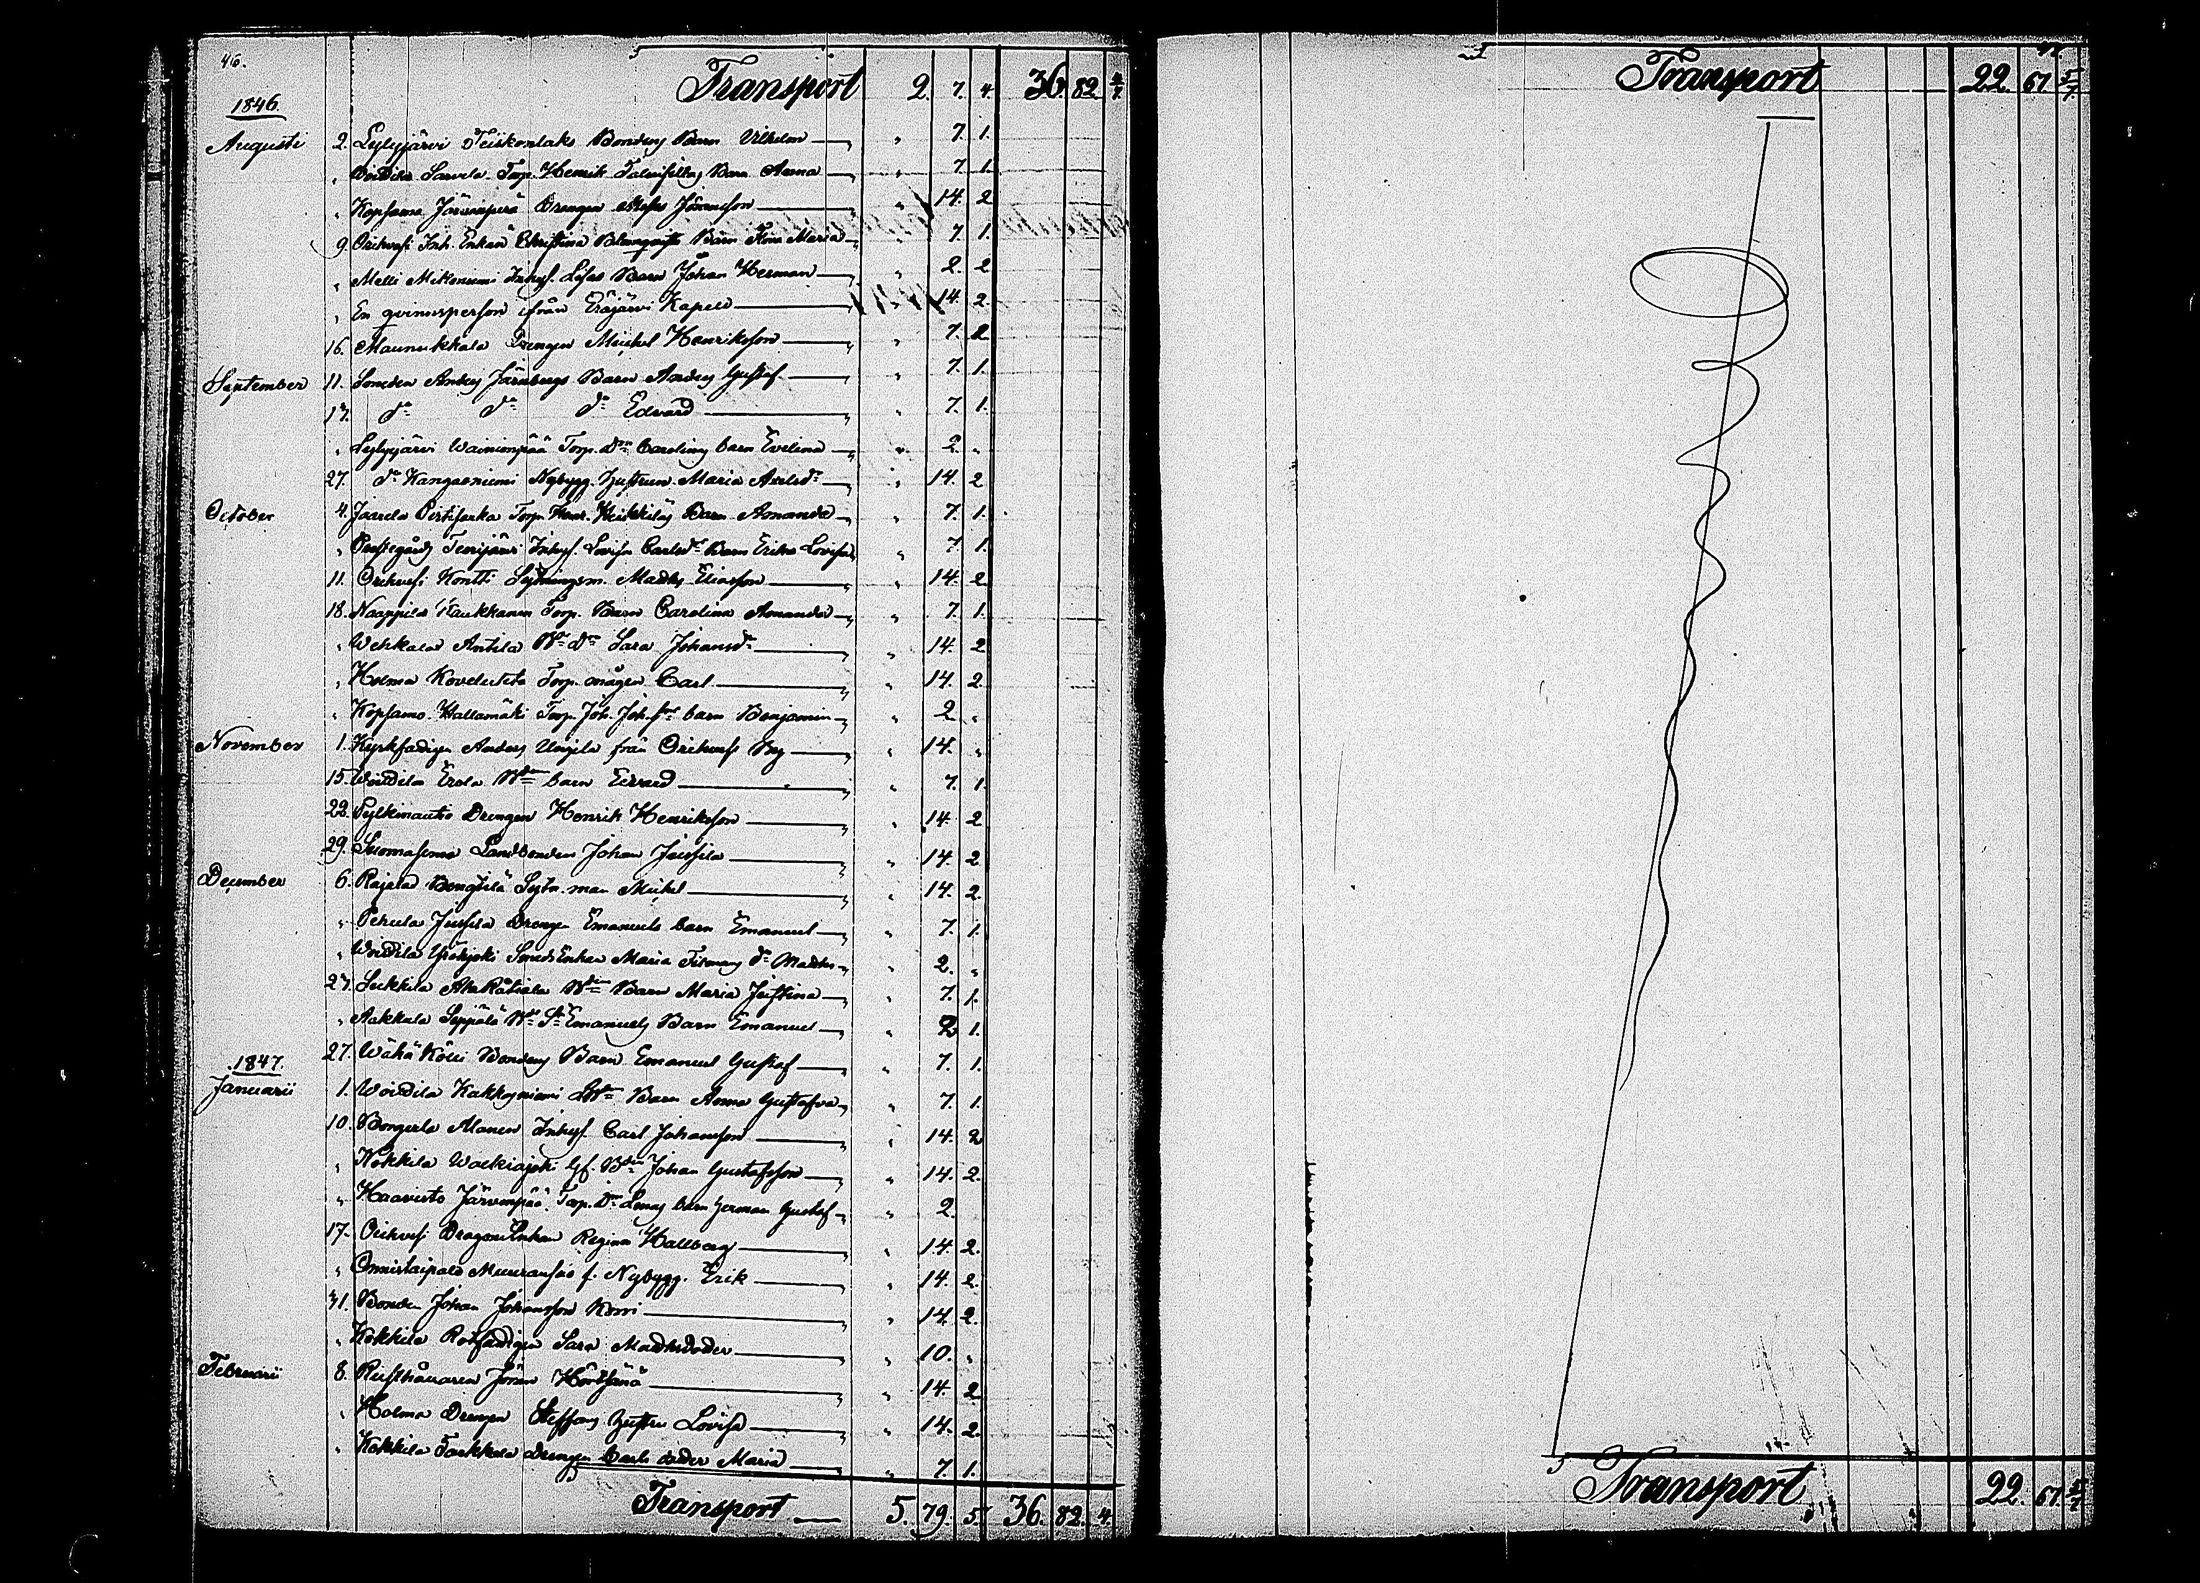 46.
Transport 2. 7. 4. 36. 82 4/7.
1846.
Augusti 2. Lylyjärvi Teiskonlaks Bondens Barn Vilhelm — " 7. 1.
" Voitila Sarvela Torp. Henrik Barn Anna — " 7. 1.
" Kopsamo Järvenperä Drengen Jöransson — " 14. 2
9. Orihvesi Inh. Enkan Christina Blomqvists Barn Maria — " 7. 1.
" Melli Mikoniemi Inhys. Lisas Barn Johan Herman — " 2. 2
" En qvinnsperson ifrån Eräjärvi Kapell — " 14. 2.
16. Maunukkala Drengen Michel Henriksson — " 7. 2
September 11. Smeden Anders Järnbergs Barn Anders Gustaf — " 7. 1.
13. do do do Edvard — " 7. 1.
" Lylyjärvi Wainionpää Torp. Dr Carolinas barn Evelina — " 2. "
27. do Kangasniemi Nybygg. Hustrun Maria Axelsdr — " 14. 2
October 4. Jaarela Torp. Henr. Heikkiläs Barn Amanda — " 7. 1.
" Prestegårds Tenijärvi Inhys. Lovisa Carlsdr Barn Erika Lovisa " 7. 1.
11. Orihvesi Kontti Sytningsm. Madts Eliasson — " 14. 2.
18. Naappila Kaukkanen Torp. Barn Carolina Amanda — " 7. 1.
" Wehkala Antila Sara Johansdr — " 14. 2
" Holma Torp. mågen Carl — " 14. 2.
" Kopsamo Hallamäki Torp. Joh. Joh.sns barn Benjamin — " 2 "
November 1. Kyrkfadigen Anders Unjela från Orihvesi By — " 14. "
15. Voitila Erola Bdns barn Edvard — " 7. 1.
22. Sylkinautio Drengen Henrik Henriksson — " 14. 2
29. Suomasema Landbonden Johan Jussila — " 14. 2
December 6. Rajala Bengtilä Sytn. man Michel — " 14. 2.
" Pehula Jussila Drengen Emanuels barn Emanuel — " 7. 1.
" Voitila Yröhjoki Smeds Enkan Maria dr Madts — " 2. "
27. Leikkila AlaRätiala Bdns Barn Maria Justina — " 7. 1.
" Aakkula Seppälä Emanuels Barn Emanuel — " 2 1.
27. Wähä Kölli Bondens Barn Emanuel Gustaf — " 7. 1.
1847.
Januarii 1. Voitila Kakkoniemi Barn Anna Gustafva — " 7. 1.
10. Bengerla Alanen Inhys. Carl Johansson — " 14. 2
" Kokkila Walkiajoki Gf. Bdn Johan Gustafsson — " 14. 2.
" Haavisto Järvenpää Torp. Dr Lenas barn Herman Gustaf — " 2.
17. Orihvesi Dragons Enkan Regina Hallberg — " 14. 2.
" Onnistaipale f. Nybygg. Erik — " 14. 2.
31. Bonden Johan Johansson Korri — " 14. 2.
" Kokkila Rotfadigen Sara Madtsdoder — " 10. "
Februarii 8. Rusthållaren Jöran Hörtsänä — " 14. 2
" Holma Drengen Steffans Hustru Lovisa — " 14. 2
" Kokkila Torkkola Drengen Carls doder Maria — " 7. 1.
Transport — 5. 79. 5. 36. 82. 4.
Transport 22. 61. 5/7
Transport 22. 61. 5/7